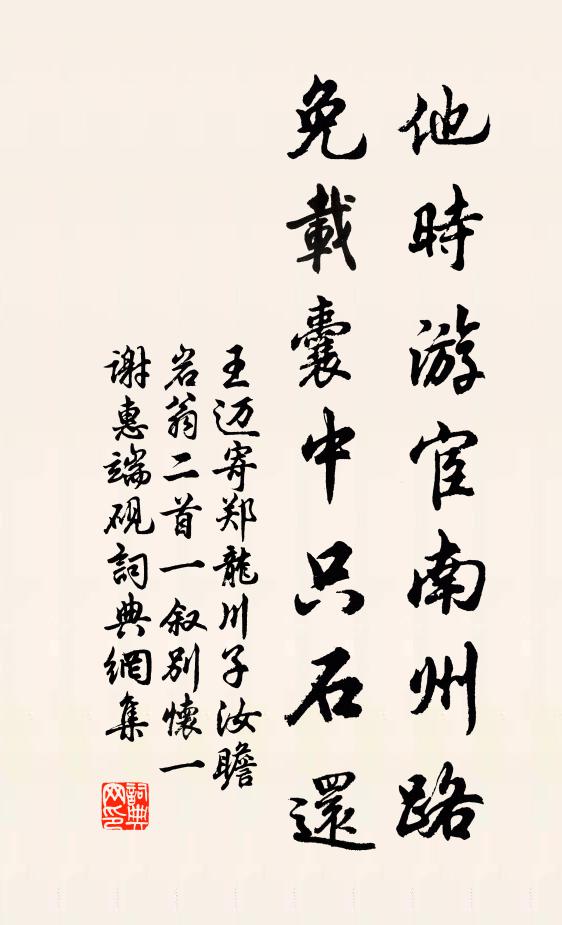 他時游宦南州路
免載囊中只石還
王迈寄郑龍川子汝瞻
岩翁二首一叙别懷一
谢惠端砚詞典網集
詞典网印